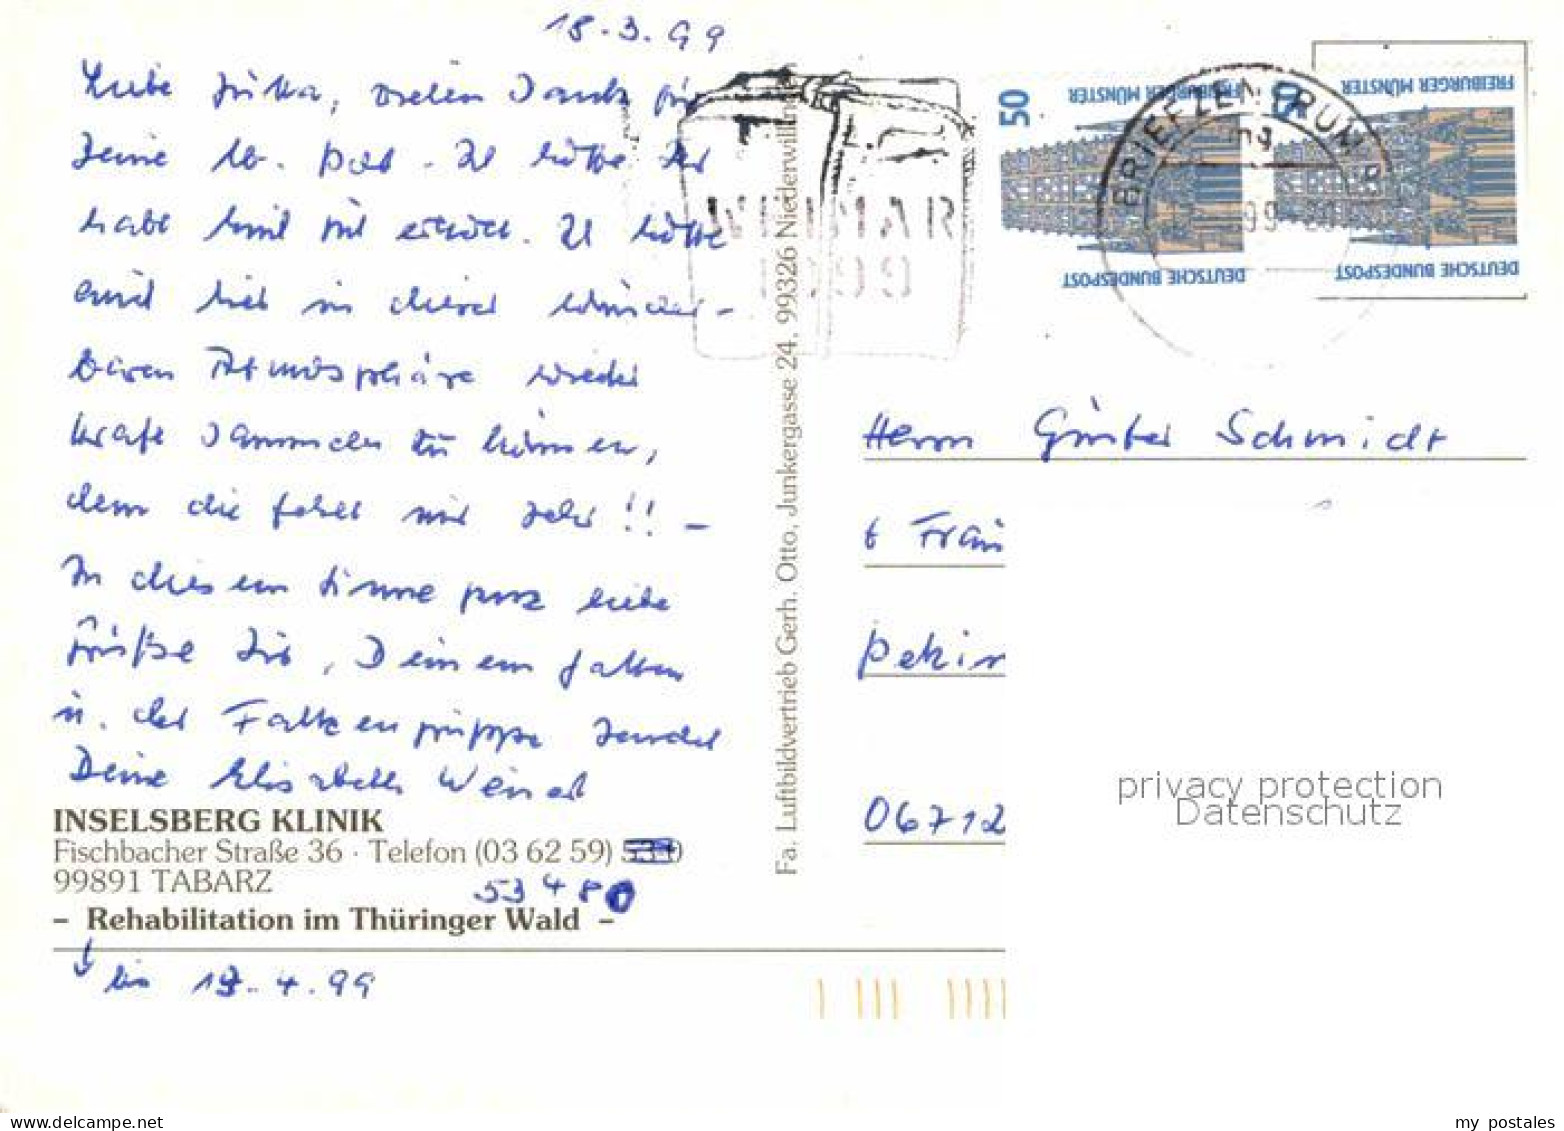 18.3.99
Liebe Jutta, vielen Dank für
Deine lb. Post. Ich hoffe Ihr
habt
Ich hoffe
auch hier in dieser wunder-
baren Atmosphäre wieder
Kraft sammeln zu können,
denn die fehlt mir sehr!! –
In diesem Sinne ganz liebe
Grüße Dir, Deinem
u. der Falkengruppe sendet
Deine Elisabeth
INSELSBERG KLINIK
Fischbacher Straße 36 · Telefon (03 62 59)
53480
99891 TABARZ
– Rehabilitation im Thüringer Wald –
bis 4.99
Fa. Luftbildvertrieb Gerh. Otto, Junkergasse 24, 99326 Niederwillingen
WEIMAR
1999
50
FREIBURGER MÜNSTER
DEUTSCHE BUNDESPOST
FREIBURGER MÜNSTER
DEUTSCHE BUNDESPOST
BRIEFZENTRUM
Herrn Günter Schmidt
Frau
06712
privacy protection
Datenschutz
my postales